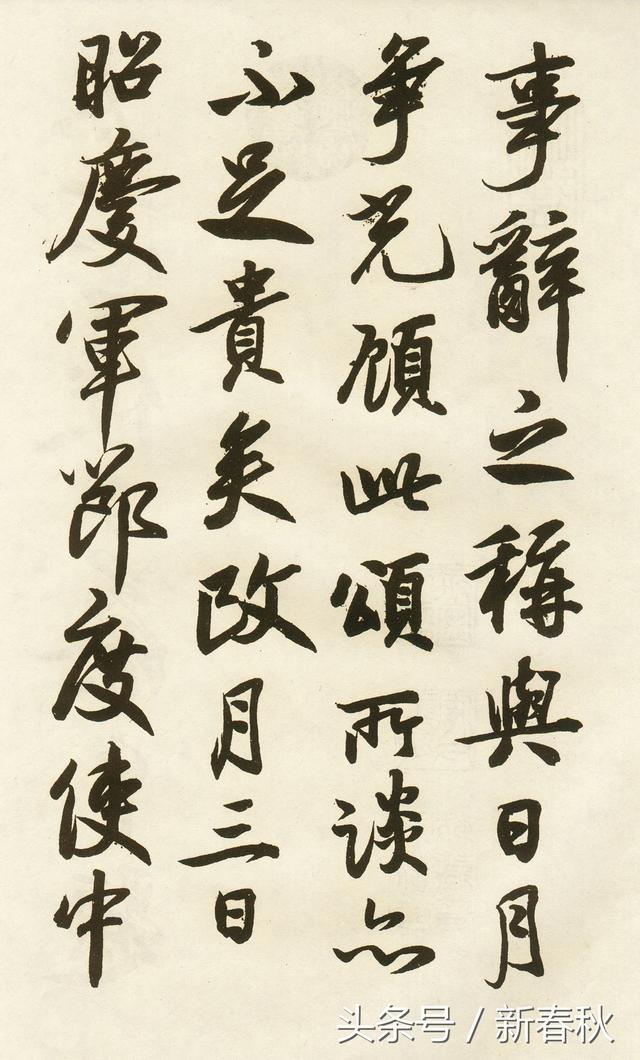 事辭之稱與日月
争光顧此頌所談亦
不足貴矣月三日
昭慶軍節度使中
头条号 / 新春秋